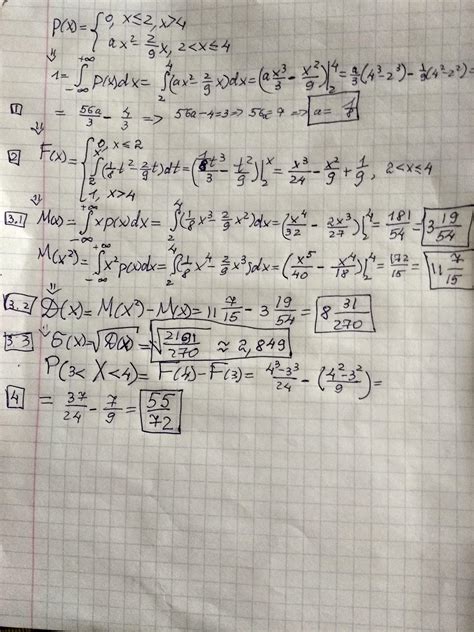 p(x) = { 0, x ≤ 2, x > 4
ax² - 2/9 x, 2 < x ≤ 4
⇓ 1 = ∫_{-∞}^{+∞} p(x)dx = ∫_2^4 (ax² - 2/9 x)dx = (a x³/3 - x²/9)|_2^4 = a/3 (4³-2³) - 1/9 (4²-2²) =
1 = 56a/3 - 4/3 => 56a-4=3 => 56a=7 => a = 1/8
⇓
2 F(x) = { 0, x ≤ 2
∫_2^x (1/8 t² - 2/9 t)dt = (1/8 t³/3 - t²/9)|_2^x = x³/24 - x²/9 + 1/9, 2 < x ≤ 4
1, x > 4
⇓
3.1 M(x) = ∫_{-∞}^{+∞} x p(x)dx = ∫_2^4 (1/8 x³ - 2/9 x²)dx = (x⁴/32 - 2x³/27)|_2^4 = 181/54 = 3 19/54
M(x²) = ∫_{-∞}^{+∞} x² p(x)dx = ∫_2^4 (1/8 x⁴ - 2/9 x³)dx = (x⁵/40 - x⁴/18)|_2^4 = 172/15 = 11 7/15
⇓
3.2 D(x) = M(x²) - M(x) = 11 7/15 - 3 19/54 = 8 31/270
3.3 ⇒ б(x) = √D(x) = √(2191/270) ≈ 2,849
P(3 < X < 4) = F(4) - F(3) = (4³-3³)/24 - ((4²-3²)/9) =
4 = 37/24 - 7/9 = 55/72